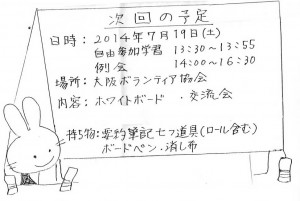 次回の予定
日時：２０１４年７月１９日(土)
自由参加学習 １３:３０～１３:５５
例会 １４:００～１６:３０
場所：大阪ボランティア協会
内容：ホワイトボード ・交流会
持ち物：要約筆記七つ道具(ロール含む)
ボードペン・消し布